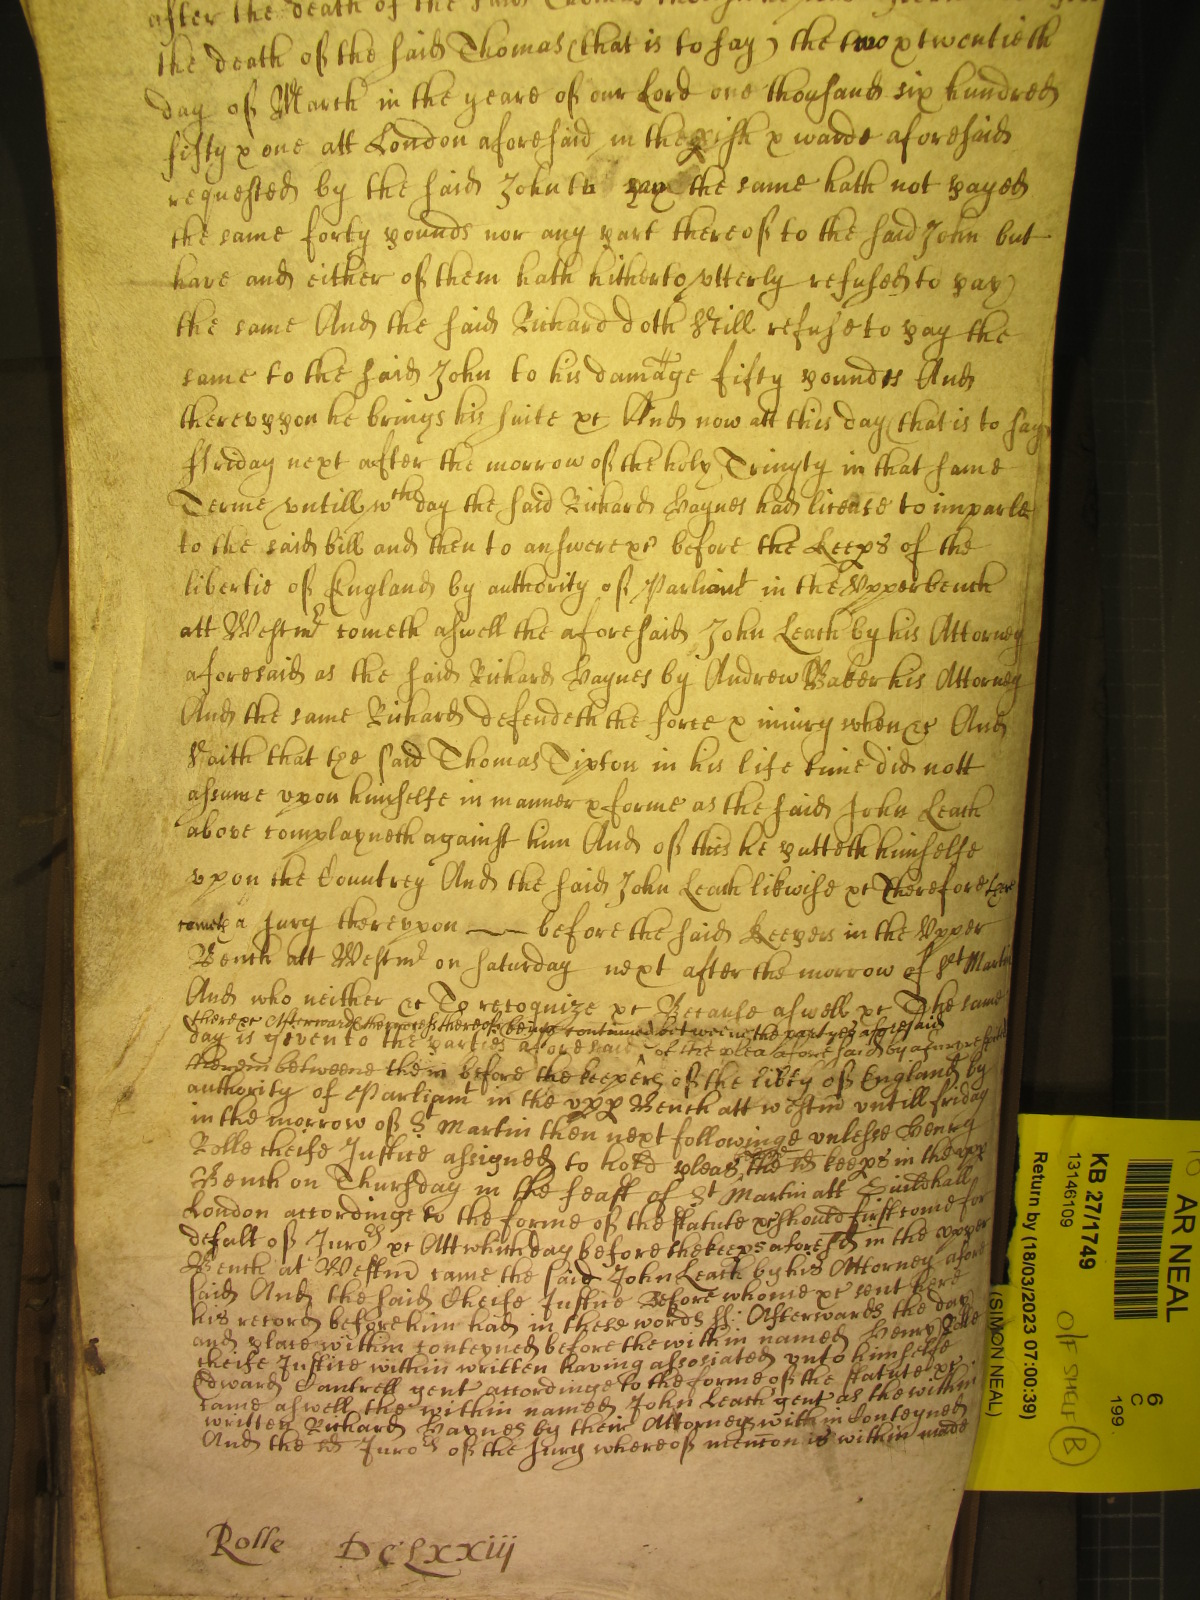 after the death of the said Thomas
the death of the said Thomas (that is to say) the two & twentieth
day of March in the yeare of our Lord one thousand six hundred
fifty & one att London aforesaid in the pish & warde aforesaid
requested by the said John to pay the same hath not payed
the same forty pounds nor any part thereof to the said John but
have and either of them hath hitherto utterly refused to pay
the same And the said Richard doth still refuse to pay the
same to the said John to his damage fifty pounds And
thereuppon he brings his suite &c And now att this day (that is to say
ffriday next after the morrow of the holy Trinyty in that same
Terme untill wch day the said Richard Haynes had license to imparle
to the said bill and then to answere &c before the Keeps of the
libertie of England by authority of Parliamt in the Upperbench
att Westmr cometh aswell the aforesaid John Leach by his Attorney
aforesaid as the said Richard Haynes by Andrew Baker his Attorney
And the same Richard defendeth the force & iniury when &c And
Saith that the said Thomas Tipton in his life time did nott
assume upon himselfe in manner & forme as the said John Leach
above complayneth against him And of this he putteth himselfe
upon the Countrey And the said John Leach likwise &c Therefore Lett
come a Jury thereupon before the said Keepers in the Upper
Bench att Westmr on Saturday next after the morrow of St Martin
And who neither &c To recognize &c Because aswell &c The same
there &c Afterwards the proces thereof being continued betweene the partyes aforesaid
day is given to the parties aforesaid of the plea aforesaid by
betweene them before the keepers of the libty of England by
authority of Parliamt in the upp Bench att westmr untill friday
in the morrow of St Martin then next followinge unlesse Henry
Rolle cheife Justice assigned to hold pleas the sd keeps in the upp
Bench on Thursday in the feast of St Martin att Guildhall
London accordinge to the forme of the statute &c should first come for
defalt of Juros &c Att which day before the keeps aforesd in the upper
Bench at Westmr came the said John Leach by his Attorney afore
said And the said Cheife Justice before whome &c sent here
his record before him had in these words ss: Afterwards the day
and place within conteyned before the within named Henry Rolle
cheife Justice within written having assosiated unto himselfe
Edward Cantrell gent accordinge to the forme of the statute &c
came aswell the within named John Leach gent as the within
written Richard Haynes by their Attorneys within Conteyned
And the sd Juros of the Jury whereof mencon is within made
Rolle DCLXXiij
AR NEAL
(SIMON NEAL)
6
C
199
KB 27/1749
13146109
O/F SHELF B
Return by (18/03/2023 07:00:39)